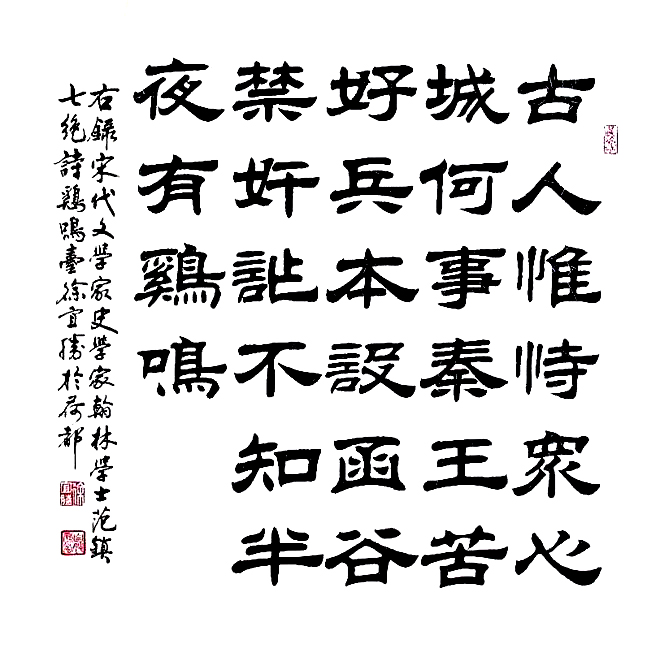 古人惟恃衆心
城何事秦王苦
好兵本設函谷
禁奸訨不知半
夜有鷄鳴
右錄宋代文學家史學家翰林學士范鎮
七絕詩鷄鳴臺徐宜勝於荷都